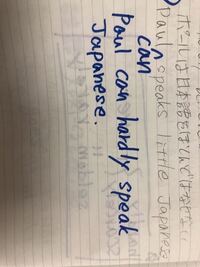 ポールは日本語をほとんどはなせない
Paul speaks little Japanese
can
Paul can hardly speak
Japanese.